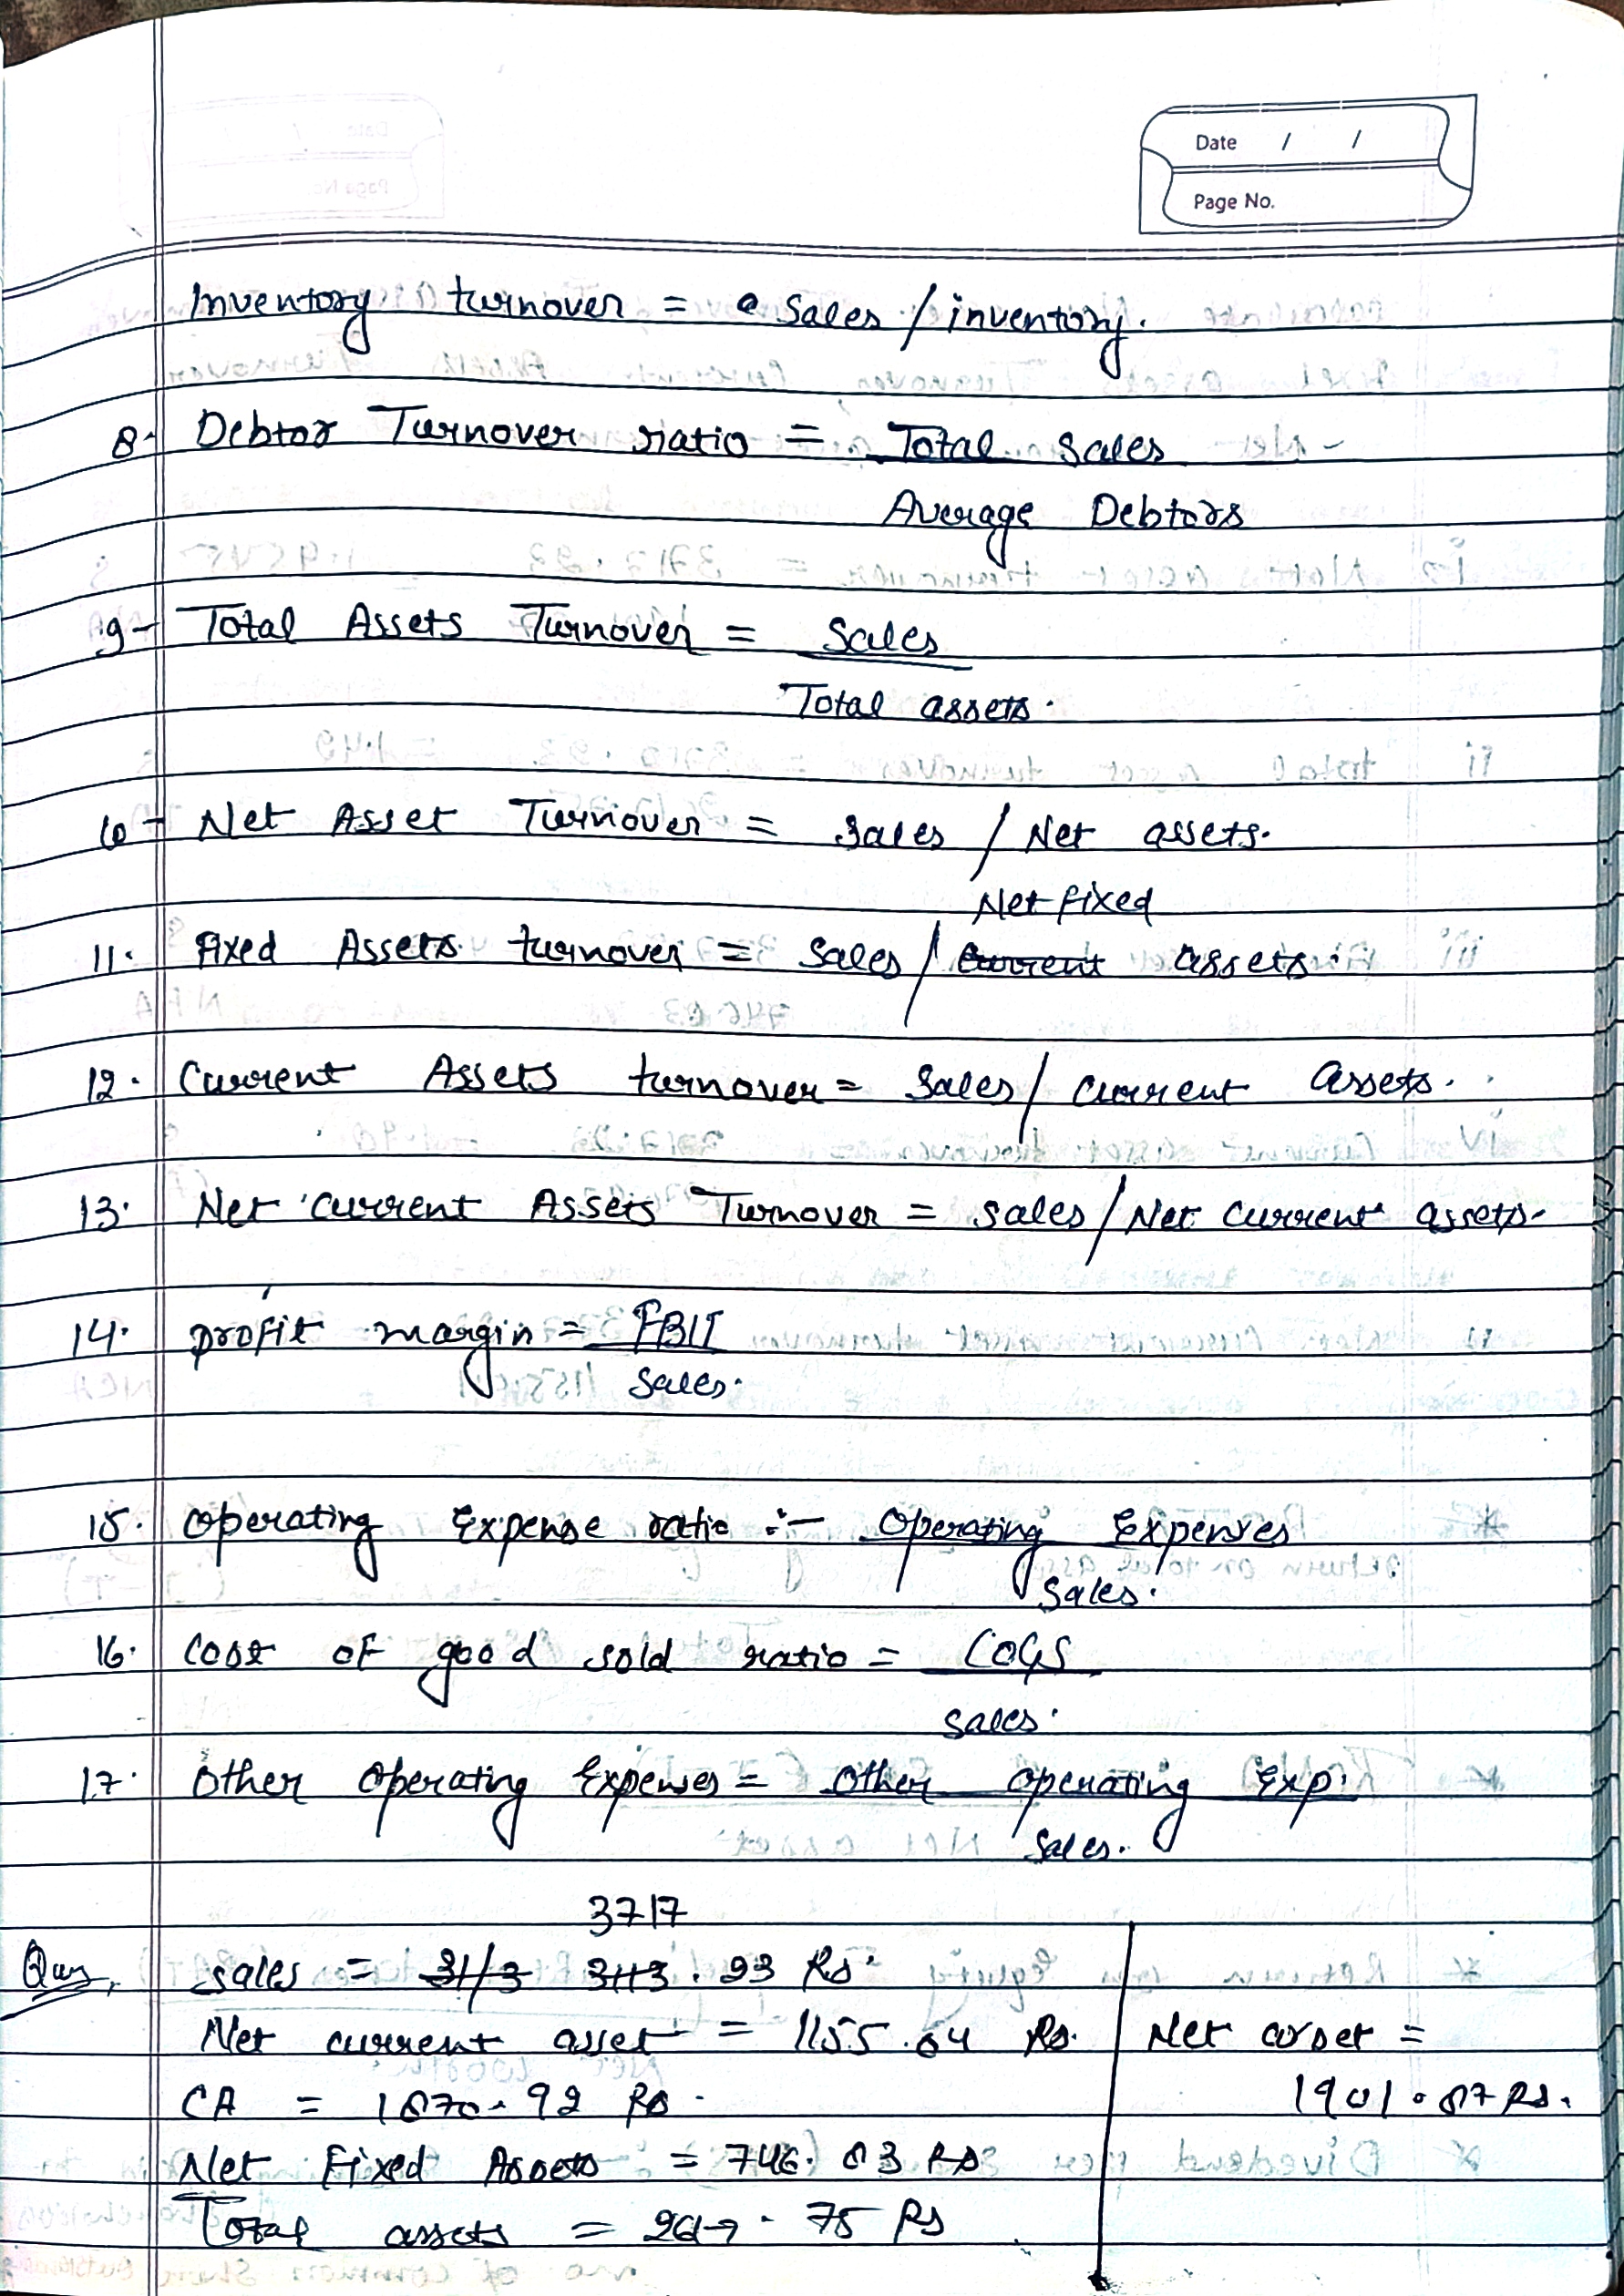 Date / /
Page No.
Inventory turnover = Sales / inventory.
8. Debtor Turnover ratio = Total Sales
Average Debtors
9- Total Assets Turnover = Sales
Total assets.
10- Net Asset Turnover = Sales / Net assets.
Net fixed
11. Fixed Assets turnover = Sales / current assets.
12. Current Assets turnover = Sales / current assets.
13. Net current Assets Turnover = sales / Net current assets.
14. profit margin = EBIT
Sales.
15. Operating Expense ratio :- Operating Expenses
Sales.
16. Cost of good sold ratio = COGS
Sales.
17. Other Operating Expenses = Other operating Exp.
Sales.
3717
Ques, Sales = 3113 3113.23 Rs.
Net current asset = 1155.04 Rs. Net asset =
CA = 1870.92 Rs. 1901.07 Rs.
Net Fixed Assets = 746.03 Rs
Total assets = .75 Rs